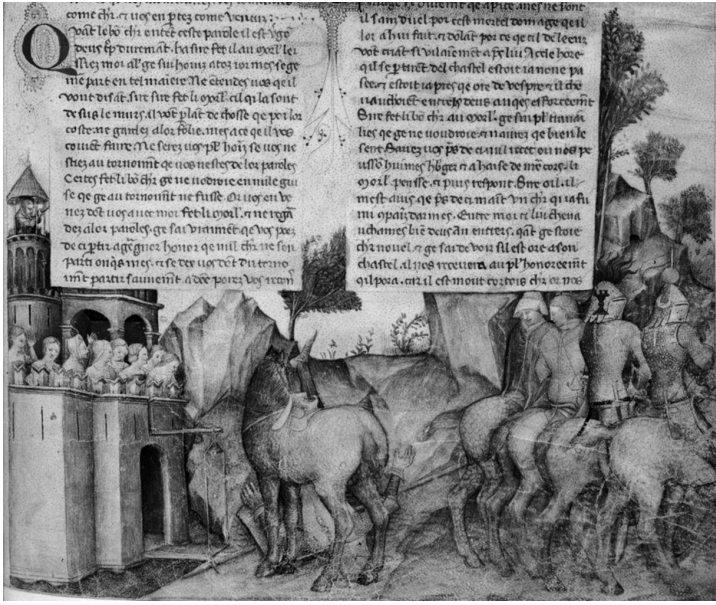 come chr. & vos en ptez come veneur:
Qāt le bō chr entēt ceste parole il est
deus ep duremāt. ha sire fet il au morl. lei
siez moi al' ge sui honiz a toz iorz mes se ge
me part en tel maiere. Ne ētendez vos qe il
vont disāt. sire sire fet li morl. cil qi la sont
de sus le murs. il vōt plāt de chosse qe por lor
coste. ne gardez a lor folie. mes ace qe il vos
covīēt faire. Ne serez vos pl' hōiz se vos ne
stiez au tornoimt qe vos nestes de lor paroles
Certes fet li bō chr ge ne vodroie en nule gui
se qe ge au tornoimt ne fusse. Or vos en ve
nez dōt vos avec moi fet li morl. & ne regā
dez a lor paroles. ge sai vraimēt qe vos poez
de ci ptir agreignor honor qe nul chr ne son
parti onqs mes. & se dex vos dōt du torno
imt partir sauvemt a dōc porez vos
il sam duel por cest mortel domage qe il
lor a hui fait. & dolāt por ce qe cil de leur
vōt criāt si vilaiemēt ap's lui. A cele hore
qil se ptirēt del chastel estoit ia none pa
see. & estoit ia pres qe ore de vespre. & il che
vauchoiēt entr'eps deus auqes esforceemt
Sire fet li bō chr au morl. ge sai pl' travai
liez qe ge ne voudroie. & navrez qe bien le
sent. Savez vos pš de ci nul recet ou nos pe
ussōs huimes hbger & a haise de me cors. li
morl. pensse. & puis respont. Sire oil. il
mest avis. qe pš de ci maīt vn chr qi ia fu
mi cōpaīz darmes. Entre moi & lui cheva
uchames biē deus an entiers. qāt ge estoie
chr novel. & ge sai de voir sil est ore a son
chastel. al nos recevera au pl' honoreemt
qil pora. car il est mout cortois chr or nos